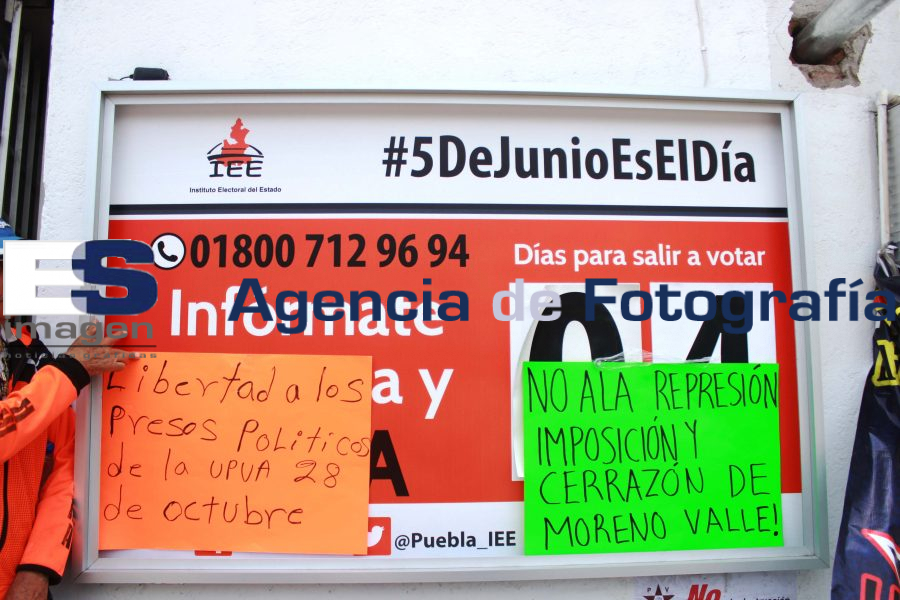 IEE
Instituto Electoral del Estado
#5DeJunioEsElDía
01800 712 96 94
Días para salir a votar
Infórmate
a y
A
04
ES
Imagen
Agencia de Fotografía
Libertad a los
Presos Politicos
de la UPVA 28
de octubre
NO A LA REPRESIÓN
IMPOSICIÓN Y
CERRAZÓN DE
MORENO VALLE!
@Puebla_IEE
No